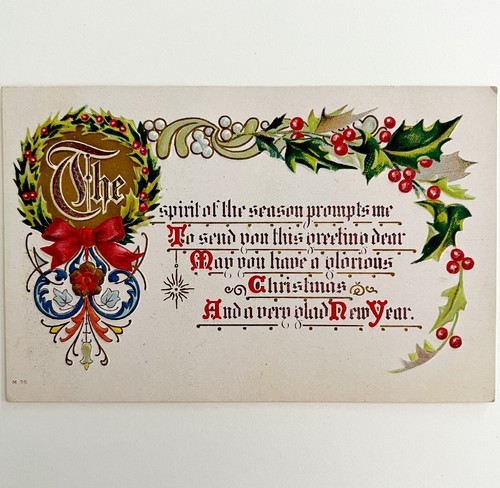 The
spirit of the season prompts me
To send you this greeting dear
May you have a glorious
Christmas
And a very glad New Year.
M 35